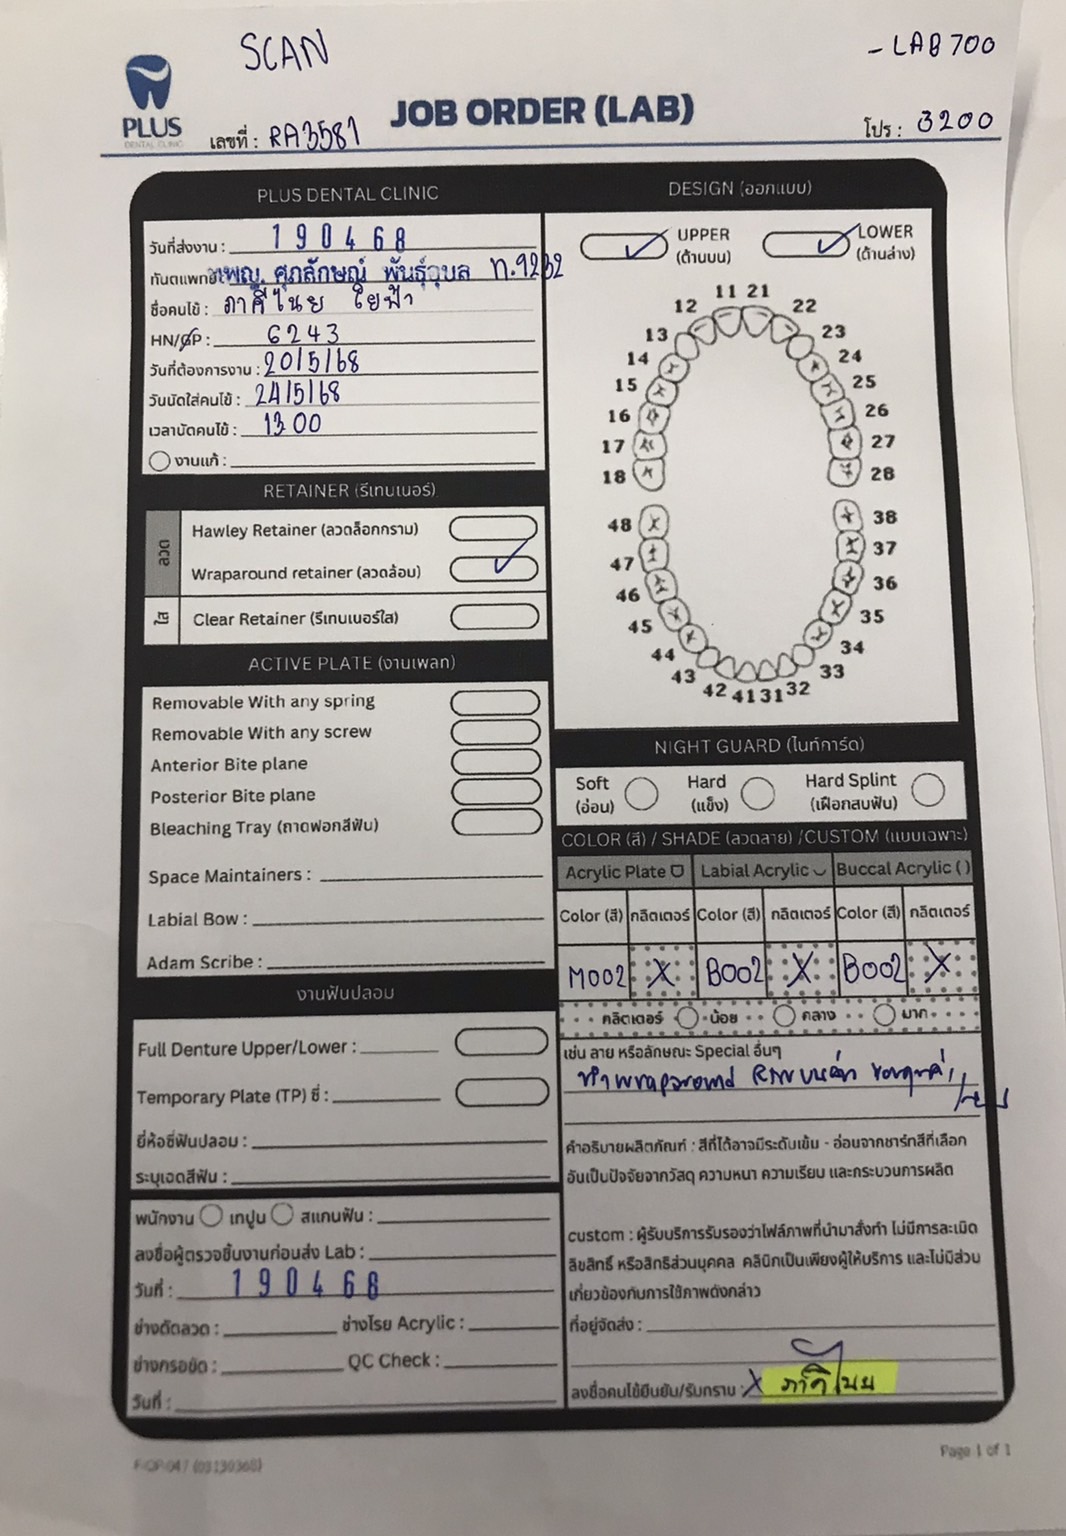 SCAN
- LAB 700
PLUS
DENTAL CLINIC
JOB ORDER (LAB)
เลขที่ : RA3581
โปร : 3200
PLUS DENTAL CLINIC
วันที่ส่งงาน : 190468
ทันตแพทย์ ทพญ. ศุภลักษณ์ พันธุ์อุบล ท.9262
ชื่อคนไข้ : ภาคีไนย ใยฟ้า
HN/GP : 6243
วันที่ต้องการงาน : 20/5/68
วันนัดใส่คนไข้ : 24/5/68
เวลานัดคนไข้ : 13 00
งานแก้ :
RETAINER (รีเทนเนอร์)
ลวด
Hawley Retainer (ลวดล็อกกราม)
Wraparound retainer (ลวดล้อม)
ใส
Clear Retainer (รีเทนเนอร์ใส)
ACTIVE PLATE (งานเพลท)
Removable With any spring
Removable With any screw
Anterior Bite plane
Posterior Bite plane
Bleaching Tray (ถาดฟอกสีฟัน)
Space Maintainers :
Labial Bow :
Adam Scribe :
งานฟันปลอม
Full Denture Upper/Lower :
Temporary Plate (TP) ซี่ :
ยี่ห้อซี่ฟันปลอม :
ระบุเฉดสีฟัน :
พนักงาน เทปูน สแกนฟัน :
ลงชื่อผู้ตรวจชิ้นงานก่อนส่ง Lab :
วันที่ : 190468
ช่างดัดลวด : ช่างโรย Acrylic :
ช่างกรอขัด : QC Check :
วันที่ :
DESIGN (ออกแบบ)
UPPER
(ด้านบน)
LOWER
(ด้านล่าง)
11 21
12 22
13 23
14 24
15 25
16 26
17 27
18 28
48 38
47 37
46 36
45 35
44 34
43 33
42 41 31 32
NIGHT GUARD (ไนท์การ์ด)
Soft
(อ่อน)
Hard
(แข็ง)
Hard Splint
(เฝือกสบฟัน)
COLOR (สี) / SHADE (ลวดลาย) /CUSTOM (แบบเฉพาะ)
Acrylic Plate Labial Acrylic Buccal Acrylic ( )
Color (สี) กลิตเตอร์ Color (สี) กลิตเตอร์ Color (สี) กลิตเตอร์
M002 X B002 X B002 X
กลิตเตอร์ น้อย กลาง มาก
เช่น ลาย หรือลักษณะ Special อื่นๆ
ทำ wraparound
คำอธิบายผลิตภัณฑ์ : สีที่ได้อาจมีระดับเข้ม - อ่อนจากชาร์ทสีที่เลือก
อันเป็นปัจจัยจากวัสดุ ความหนา ความเรียบ และกระบวนการผลิต
custom : ผู้รับบริการรับรองว่าไฟล์ภาพที่นำมาสั่งทำ ไม่มีการละเมิด
ลิขสิทธิ์ หรือสิทธิส่วนบุคคล คลินิกเป็นเพียงผู้ให้บริการ และไม่มีส่วน
เกี่ยวข้องกับการใช้ภาพดังกล่าว
ที่อยู่จัดส่ง :
ลงชื่อคนไข้ยืนยัน/รับทราบ : X ภาคีไนย
Page 1 of 1